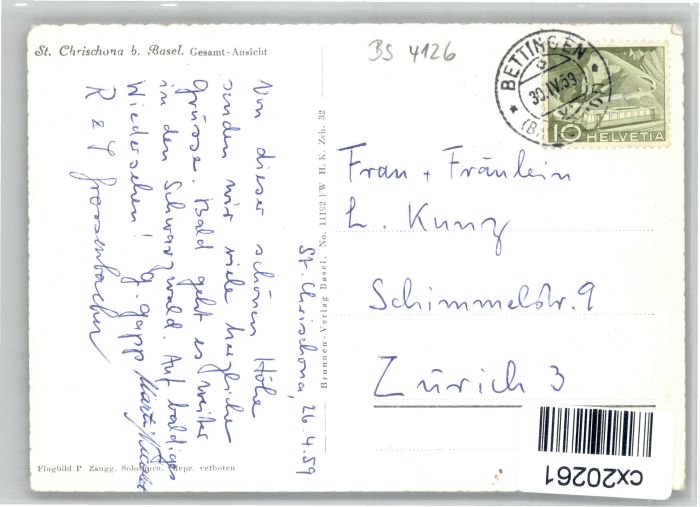 St. Chrischona b. Basel. Gesamt-Ansicht
BS 4126
BETTINGEN
30.IV.59
10 HELVETIA
St. Chrischona, 26.4.59
Von dieser schönen Höhe
senden wir viele herzliche
Grüsse. Bald geht es weiter
in den Schwarzwald. Auf baldiges
Wiedersehen!
R & Y Grossenbacher
Frau + Fräulein
L. Kunz
Schimmelstr. 9
Zürich 3
Brunnen-Verlag Basel. No. 11192 FW H. K. Zch. 32
Flugbild P. Zaugg. Solothurn. Repr. verboten
cx20261